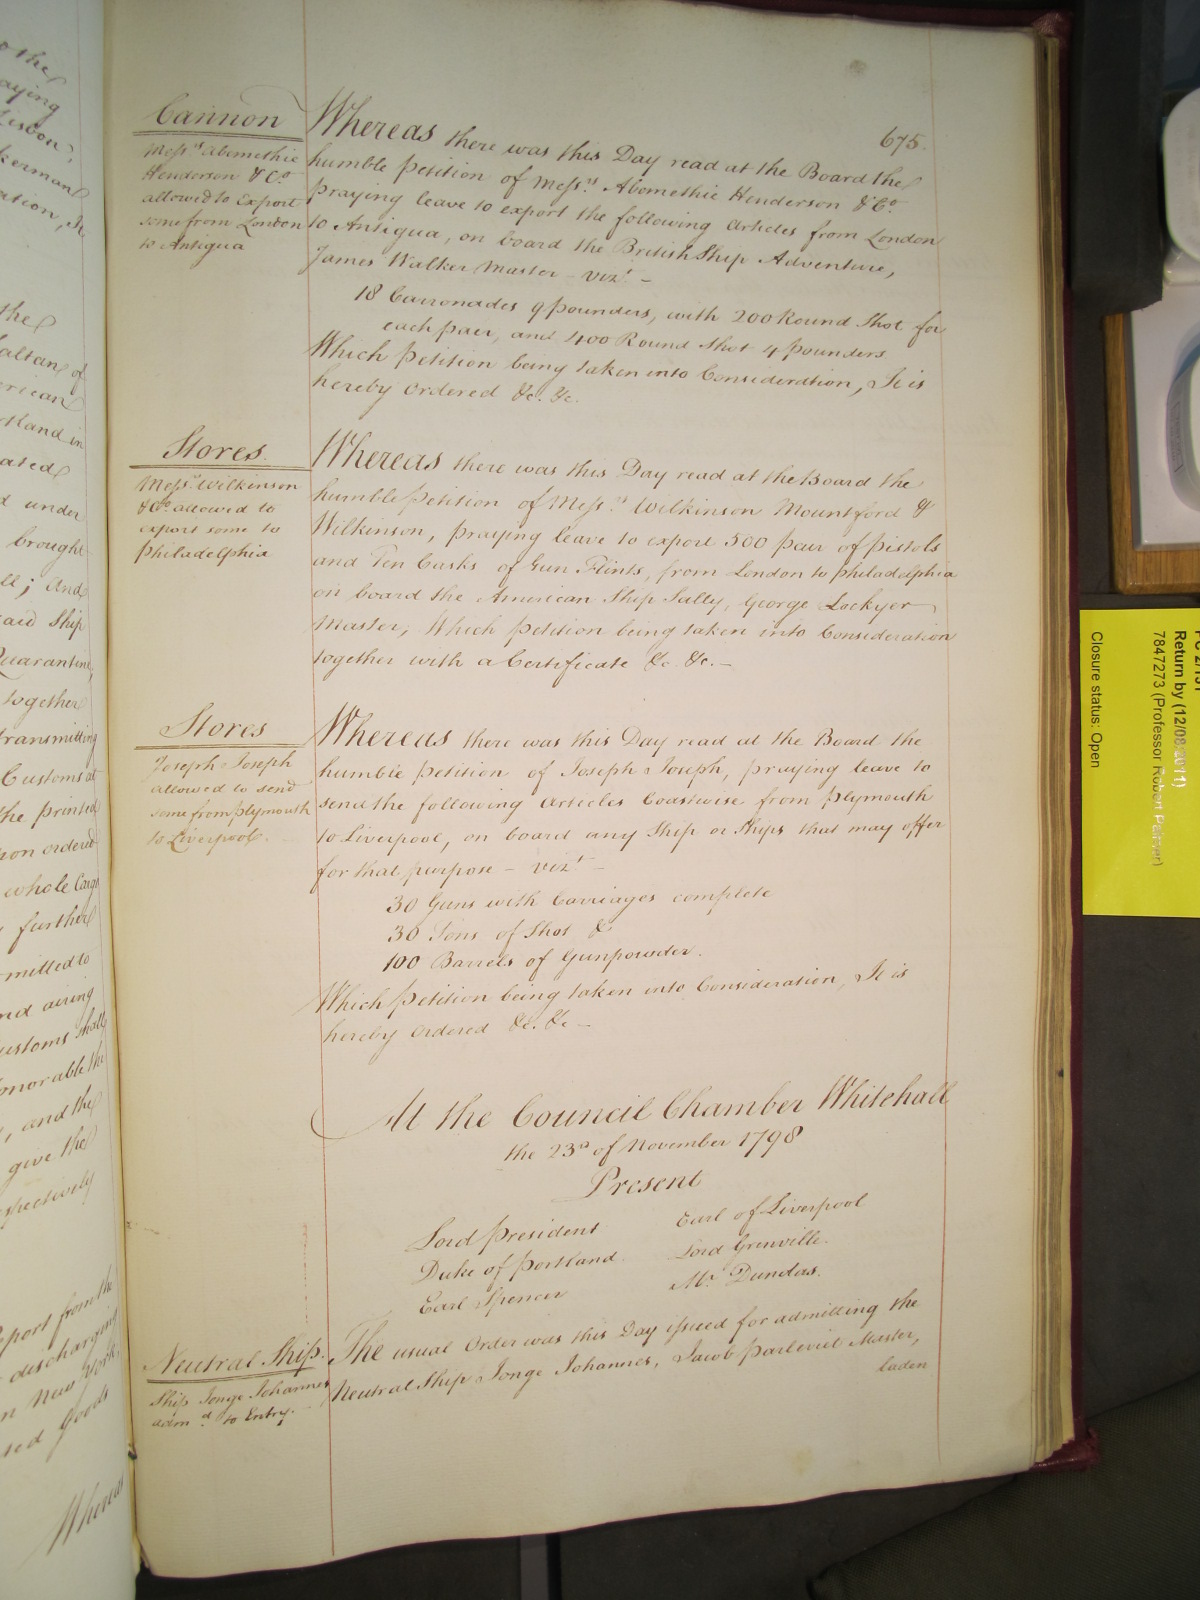 675.
Cannon
Mess.rs Abomethie
Henderson & Co.
allowed to Export
some from London
to Antigua
Whereas there was this Day read at the Board the
humble Petition of Mess.rs Abomethie Henderson & Co.
praying leave to export the following Articles from London
to Antigua, on board the British Ship Adventure,
James Walker Master – vizt. –
18 Carronades 9 pounders, with 200 Round Shot for
each pair, and 400 Round Shot 4 pounders
Which Petition being taken into Consideration, It is
hereby Ordered &c. &c.
Stores.
Mess.rs Wilkinson
& Co. allowed to
export some to
Philadelphia
Whereas there was this Day read at the Board the
humble Petition of Mess.rs Wilkinson Mountford &
Wilkinson, praying leave to export 500 pair of Pistols
and Ten Casks of Gun Flints, from London to Philadelphia
on board the American Ship Sally, George Lockyer
Master; Which Petition being taken into Consideration
together with a Certificate &c. &c. –
Stores
Joseph Joseph
allowed to send
some from Plymouth
to Liverpool.
Whereas there was this Day read at the Board the
humble Petition of Joseph Joseph, praying leave to
send the following Articles Coastwise from Plymouth
to Liverpool, on board any Ship or Ships that may offer
for that purpose – vizt. –
30 Guns with Carriages complete
30 Tons of Shot &
100 Barrels of Gunpowder.
Which Petition being taken into Consideration, It is
hereby Ordered &c. &c. –
At the Council Chamber Whitehall
the 23d of November 1798
Present
Lord President
Earl of Liverpool
Duke of Portland.
Lord Grenville.
Earl Spencer
Mr. Dundas.
Neutral Ship.
Ship Jonge Johannes
admd. to Entry.
The usual Order was this Day issued for admitting the
Neutral Ship Jonge Johannes, Jacob Parleviet Master,
laden
Return by (12/08/2011)
7847273 (Professor Robert
Closure status: Open
to the
aying
Lisbon,
kerman
ation, It
the
altan of
erican
Island in
ated
d under
brought
ll; And
said Ship
Quarantine,
together
transmitting
Customs at
the printed
on ordered
whole Cargo
further
mitted to
and airing
Customs shall
onorable the
, and the
give the
espectively
eport from the
discharging
n New York
sed Goods
Whereas